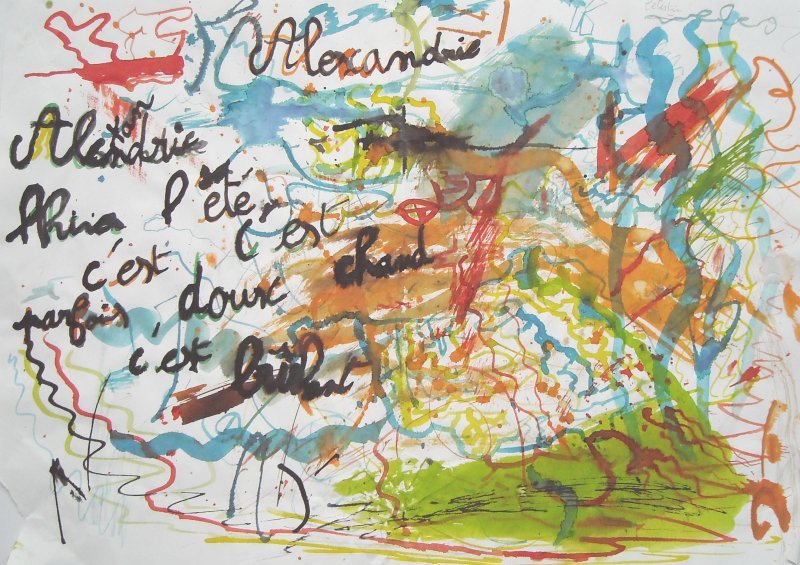 Alexandrie
ton
l'été, c'est
c'est doux chaud
parfois
c'est brûlant